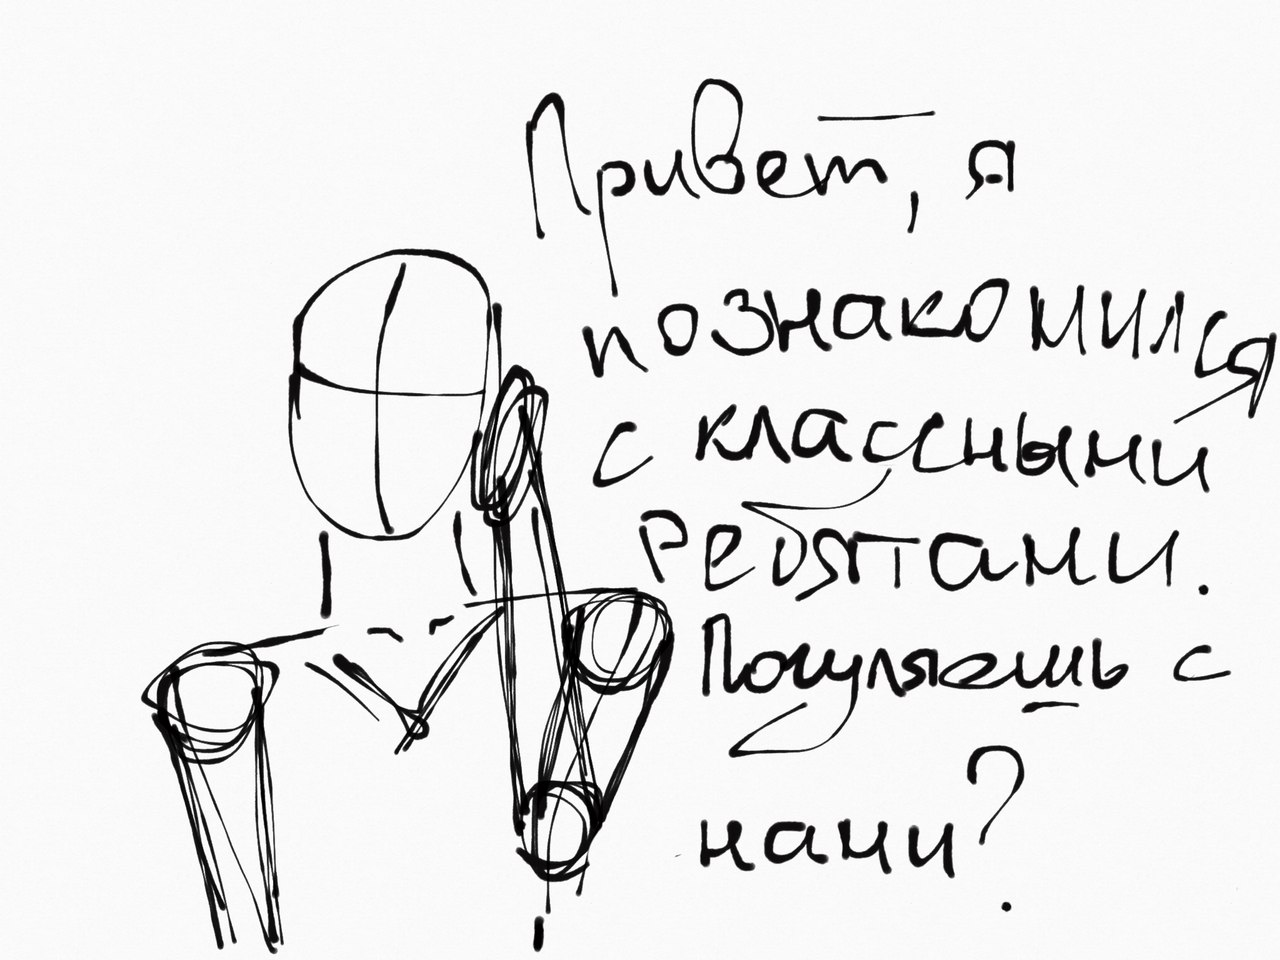 Привет, я
познакомился
с классными
ребятами.
Погуляешь с
нами?